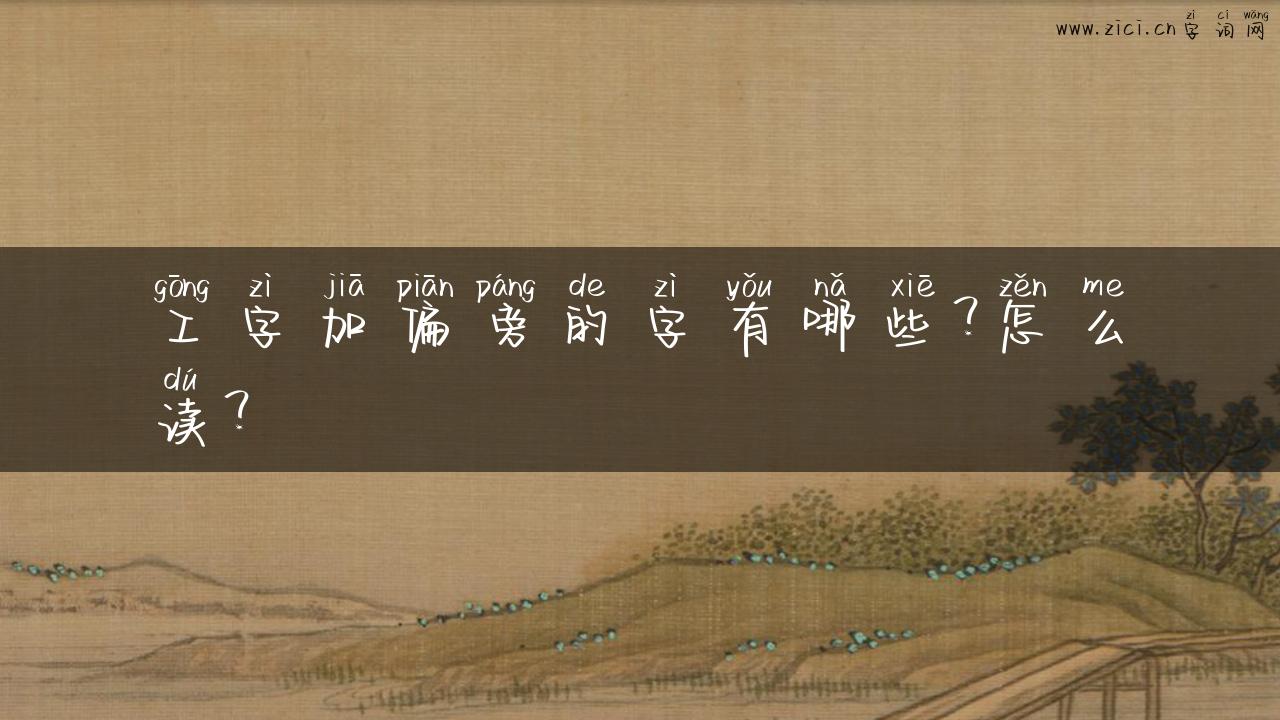 zì cí wǎng
www.zici.cn字词网
gōng zì jiā piān páng de zì yǒu nǎ xiē zěn me
工字加偏旁的字有哪些?怎么
dú
读?